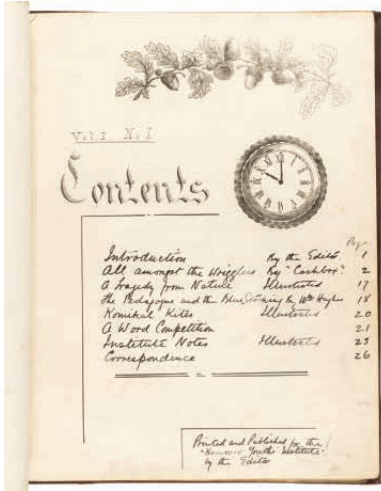 Vol: I. No I
Contents
Page
Introduction By the Editor 1
All amongst the Wrigglers By "Cashbox". 2
A Tragedy from Nature Illustrated 17
The Pedagogue and the Blue Stocking by Wm Hughes 18
Komikal Kills Illustrated 20
A Word Competition 21
Institute Notes Illustrated 23
Correspondence 26
Printed and Published for the
Youths' Institute"
by the Editor